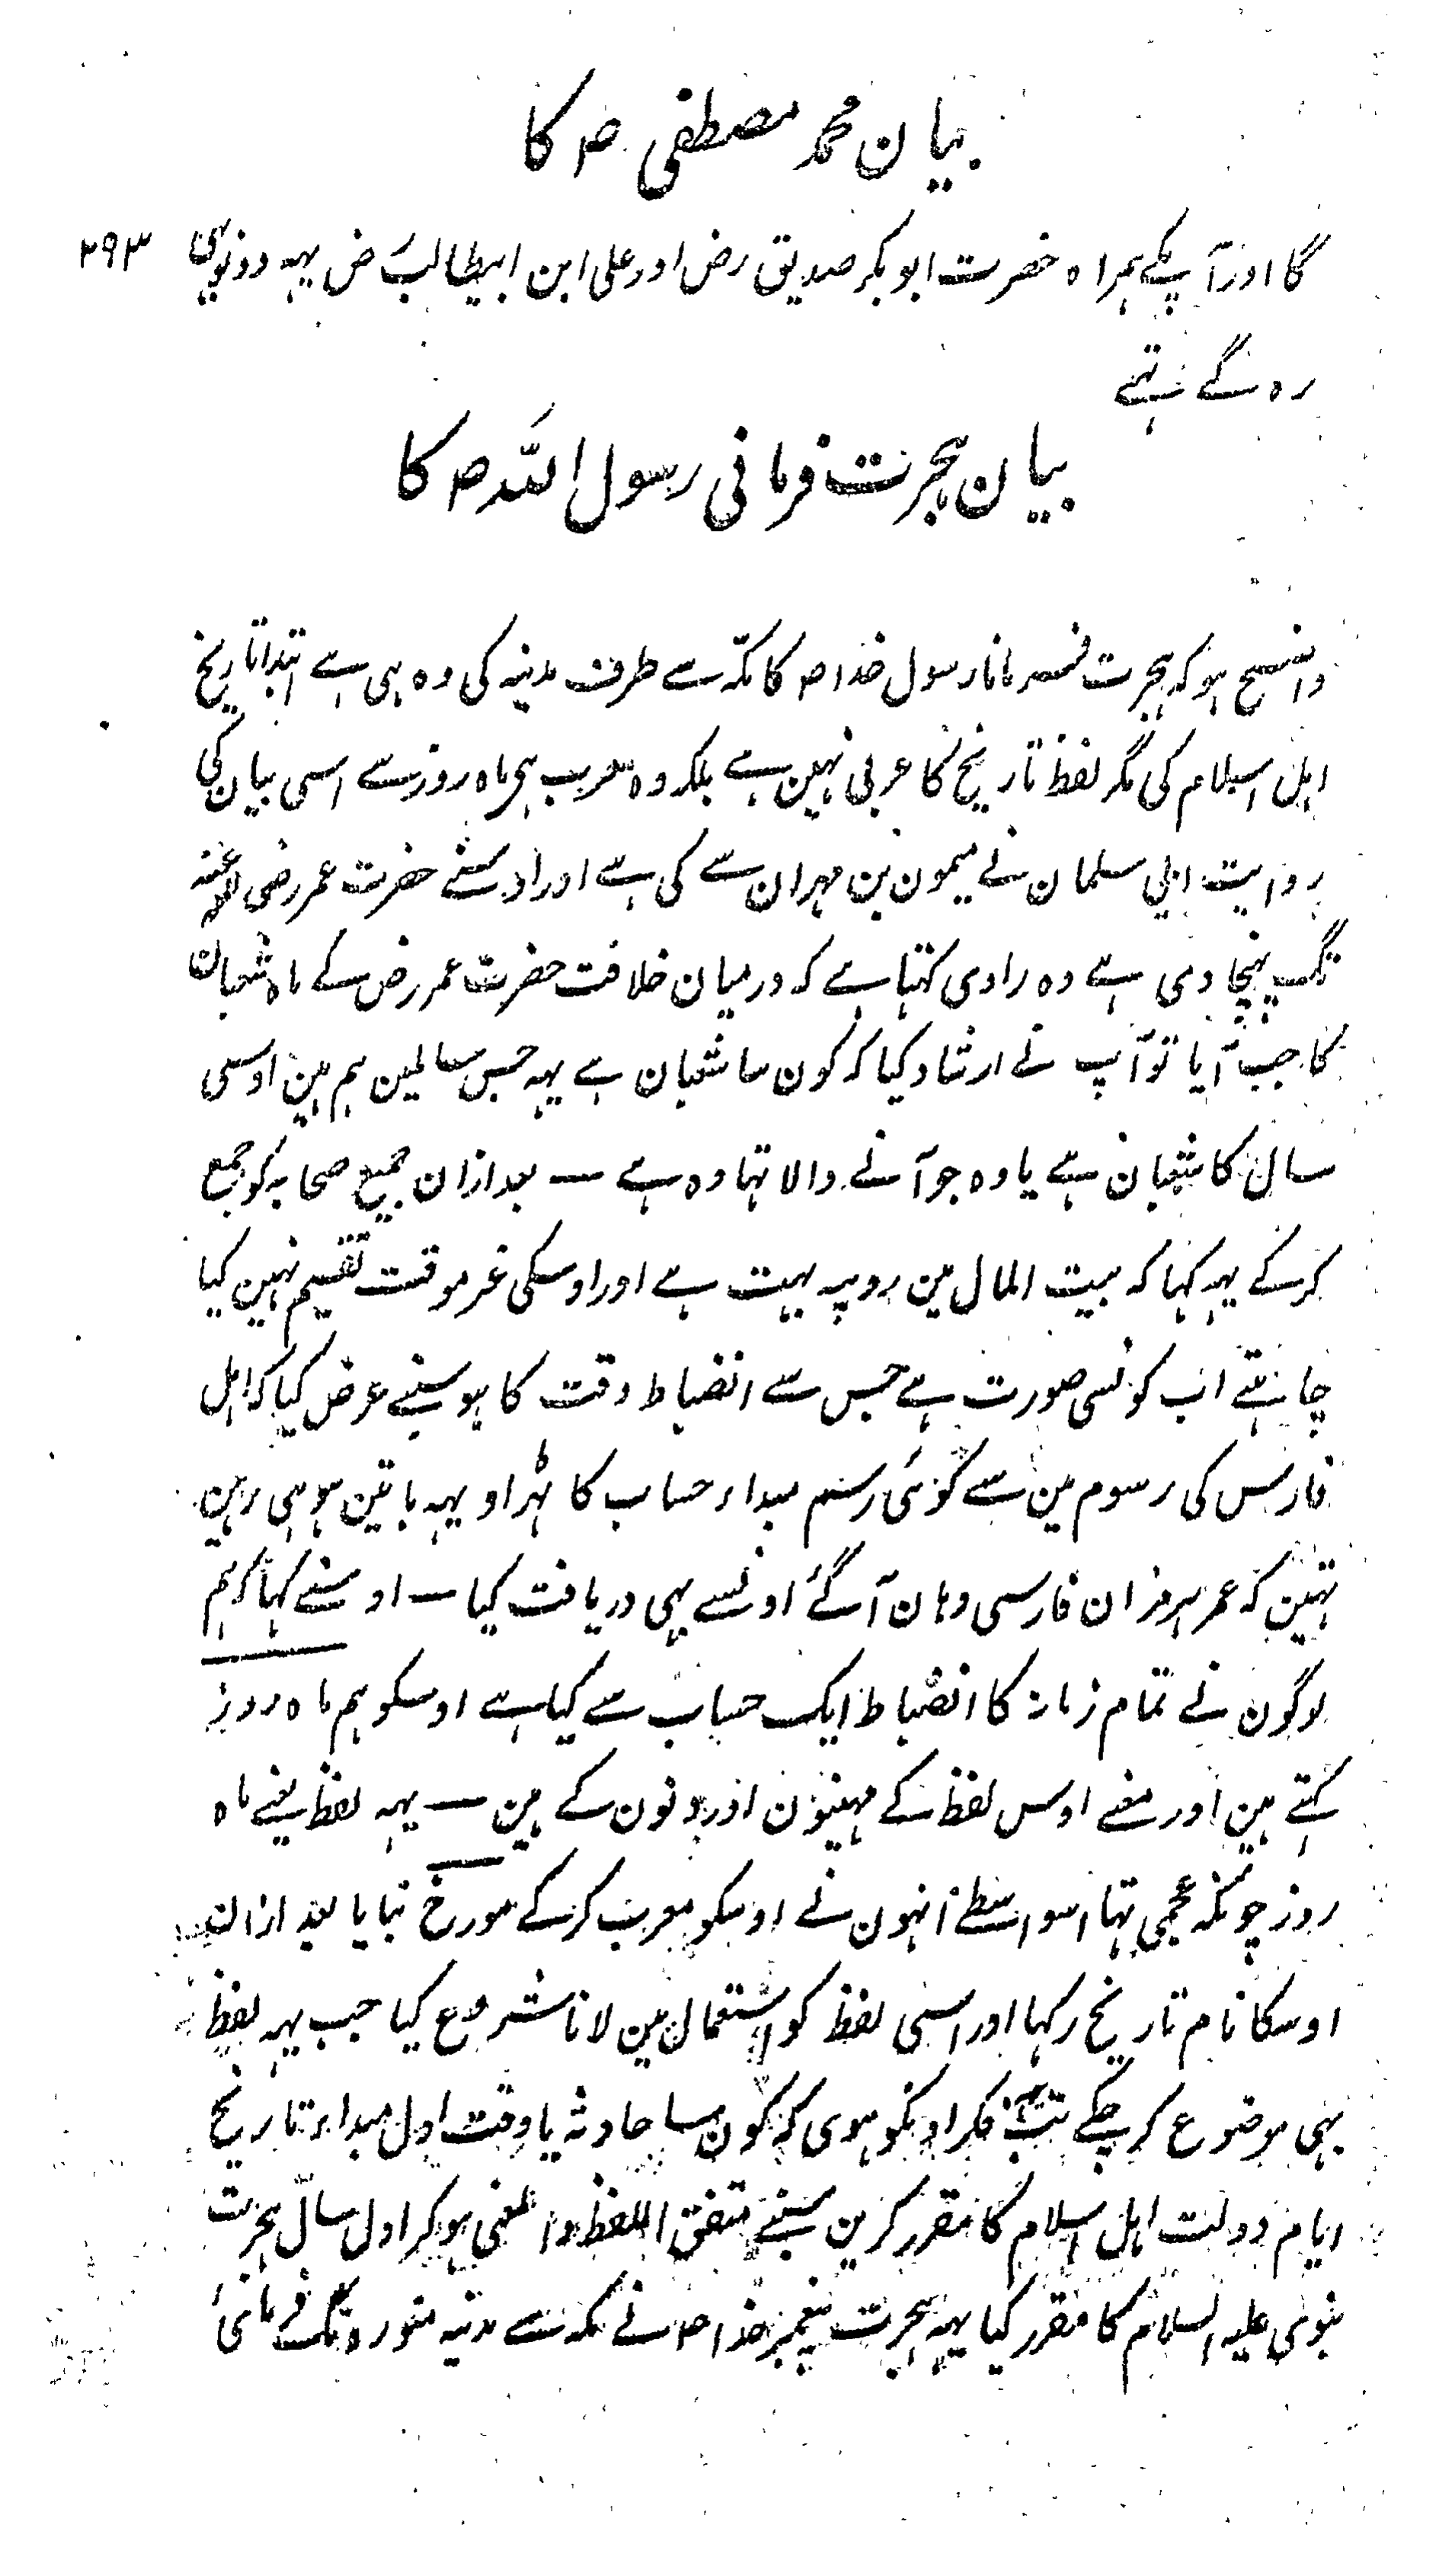 بیان محمد مصطفی ص کا
۲۹۳
گا اور آپکے ہمراہ حضرت ابو بکر صدیق رض اور علی ابن ابیطالب رض یہہ دونوہی
رہ گے تہے
بیان ہجرت فرمانی رسول اللہ ص کا
واضح ہو کہ ہجرت فرمانا رسول خدا ص کا مکّہ سے طرف مدینہ کی وہ ہی ہے ابتدا تاریخ
اہل اسلام کی مگر لفظ تاریخ کا عربی نہین ہے بلکہ وہ معرب ہی ماہ روز سے اسی بیان کی
روایت ابی سلمان نے میمون بن مہران سے کی ہے اور اوسنے حضرت عمر رضی اللہ عنہ
تک پہنچا دی ہے وہ راوی کہتا ہے کہ درمیان خلافت حضرت عمر رض کے ماہ شعبان
کا جب آیا تو آپ نے ارشاد کیا کہ کون سا شعبان ہے یہہ جس سالمین ہم ہین اوسی
سال کا شعبان ہے یا وہ جو آنے والا تہا وہ ہے — بعد ازان جمیع صحابہ کو جمع
کرکے یہہ کہا کہ بیت المال مین روپیہ بہت ہے اور اوسکی غر موقت تقسیم نہین کیا
چاہتے اب کونسی صورت ہے جس سے انضباط وقت کا ہو سبنے عرض کیا کہ اہل
فارس کی رسوم مین سے کوئی رسم مبداء حساب کا ٹہراو یہہ باتین ہو ہی رہین
تہین کہ عمر ہرمزان فارسی وہان آگئے اونسے بہی دریافت کیا — اوسنے کہا کہ ہم
لوگون نے تمام زمانہ کا انضباط ایک حساب سے کیا ہے اوسکو ہم ماہ روز
کہتے ہین اور معنے اوس لفظ کے مہینون اور دنون کے ہین — یہہ لفظ یعنے ماہ
روز چونکہ عجمی تہا اسواسطے انہون نے اوسکو معرب کرکے مورخ بنایا بعد ازان
اوسکا نام تاریخ رکہا اور اسی لفظ کو استعمال مین لانا شروع کیا جب یہہ لفظ
بہی موضوع کر چکے تب فکر اونکو ہوی کہ کون سا حادثہ یا وقت اول مبداء تاریخ
ایام دولت اہل اسلام کا مقرر کرین سبنے متفق اللفظ والمعنی ہو کر اول سال ہجرت
نبوی علیہ السلام کا مقرر کیا یہہ ہجرت پیغمبر خدا ص نے مکہ سے مدینہ منورہ تک فرمائی